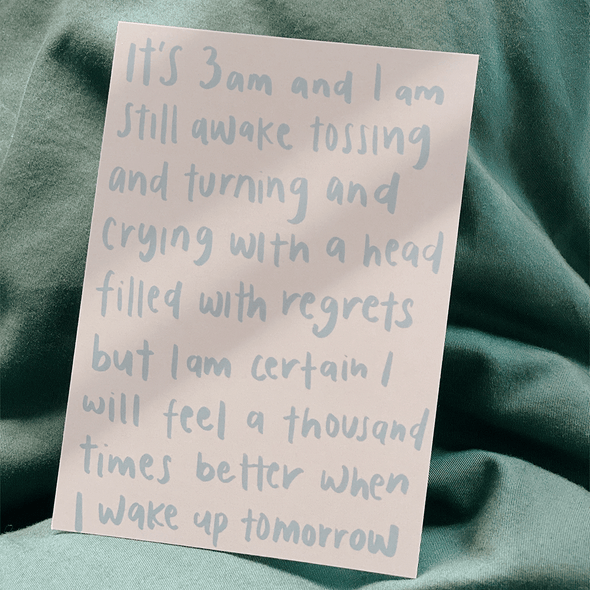 It's 3am and I am
still awake tossing
and turning and
crying with a head
filled with regrets
but I am certain I
will feel a thousand
times better when
I wake up tomorrow